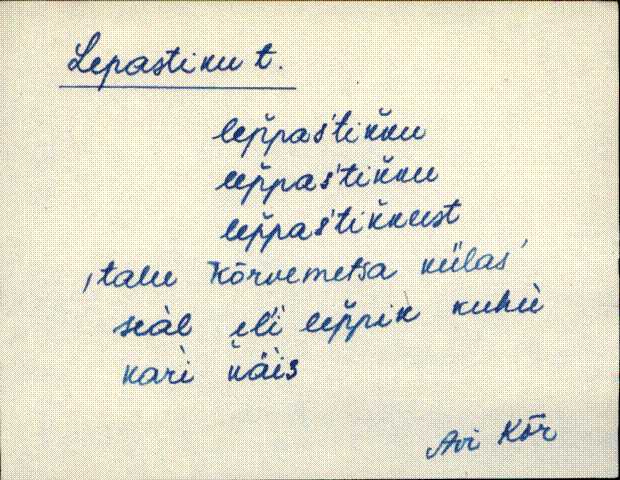 Lepastiku t.
lep̆pas'tik̆ku
lep̆pas'tik̆ku
lep̆pas'tik̆kust
'talu Kõrvemetsa külas'
seàl el'i lep̆pik kuhù
karì k̆äis
Avi Kõr